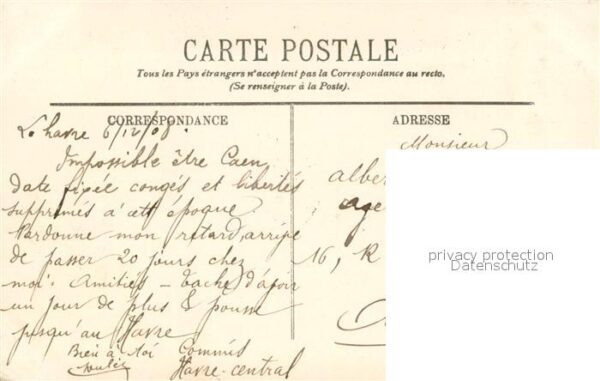 CARTE POSTALE
Tous les Pays étrangers n'acceptent pas la Correspondance au recto.
(Se renseigner à la Poste).
CORRESPONDANCE
Le havre 6/12/08.
Impossible être Caen
date fixée congés et libertés
supprimés à cett époque
Pardonne mon retard, arrive
de passer 20 jours chez
moi. Amitiés – Tache d'avoir
un jour de plus & pousse
jusqu'au Havre
Bien à toi Commis
Havre-central
ADRESSE
Monsieur
alber
age
16, R
privacy protection
Datenschutz